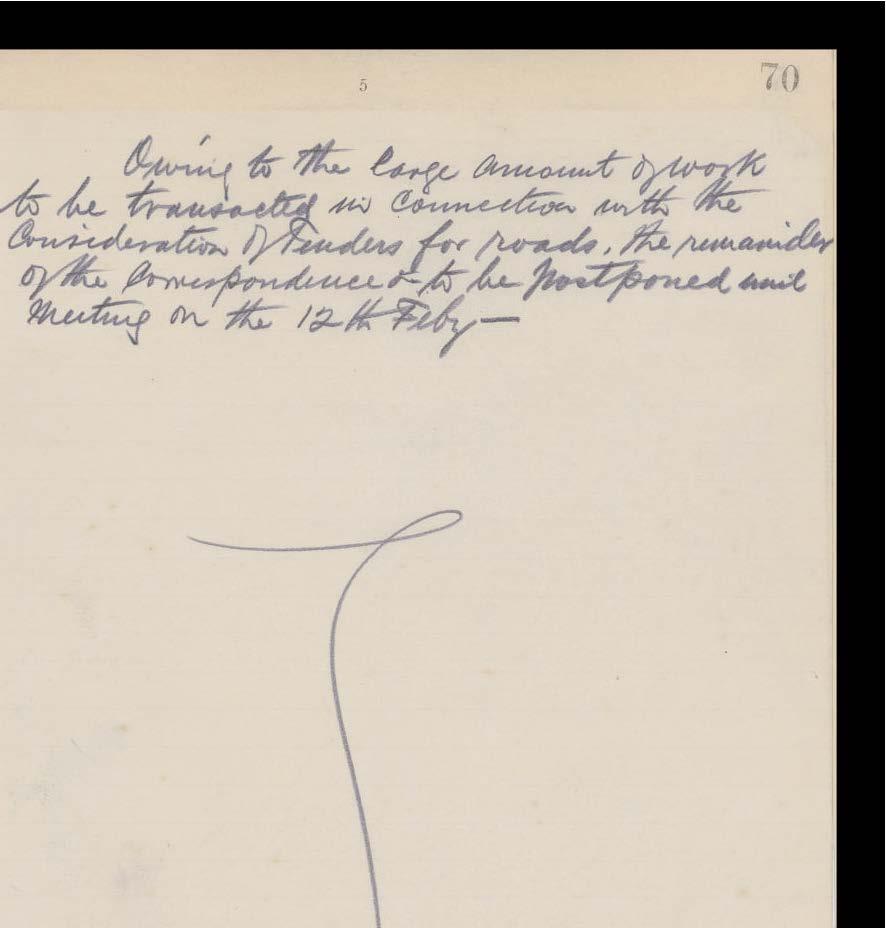 5
70
Owing to the large amount of work
to be transacted in Connection with the
Consideration of Tenders for roads, the remainder
of the Correspondence to be postponed until
Meeting on the 12th Feby —